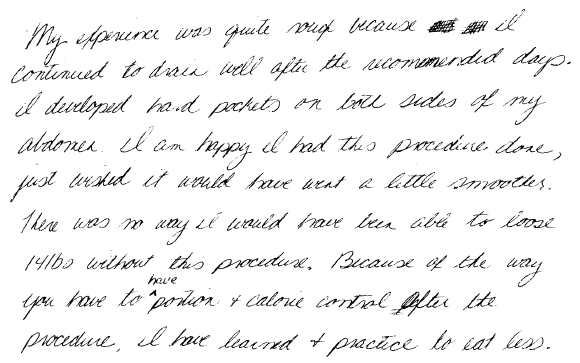 My experience was quite rough because I
continued to drain well after the recommended days.
I developed hard pockets on both sides of my
abdomen. I am happy I had this procedure done,
just wished it would have went a little smoother.
There was no way I would have been able to loose
14lbs without this procedure. Because of the way
you have to have portion + calorie control after the
procedure, I have learned + practice to eat less.